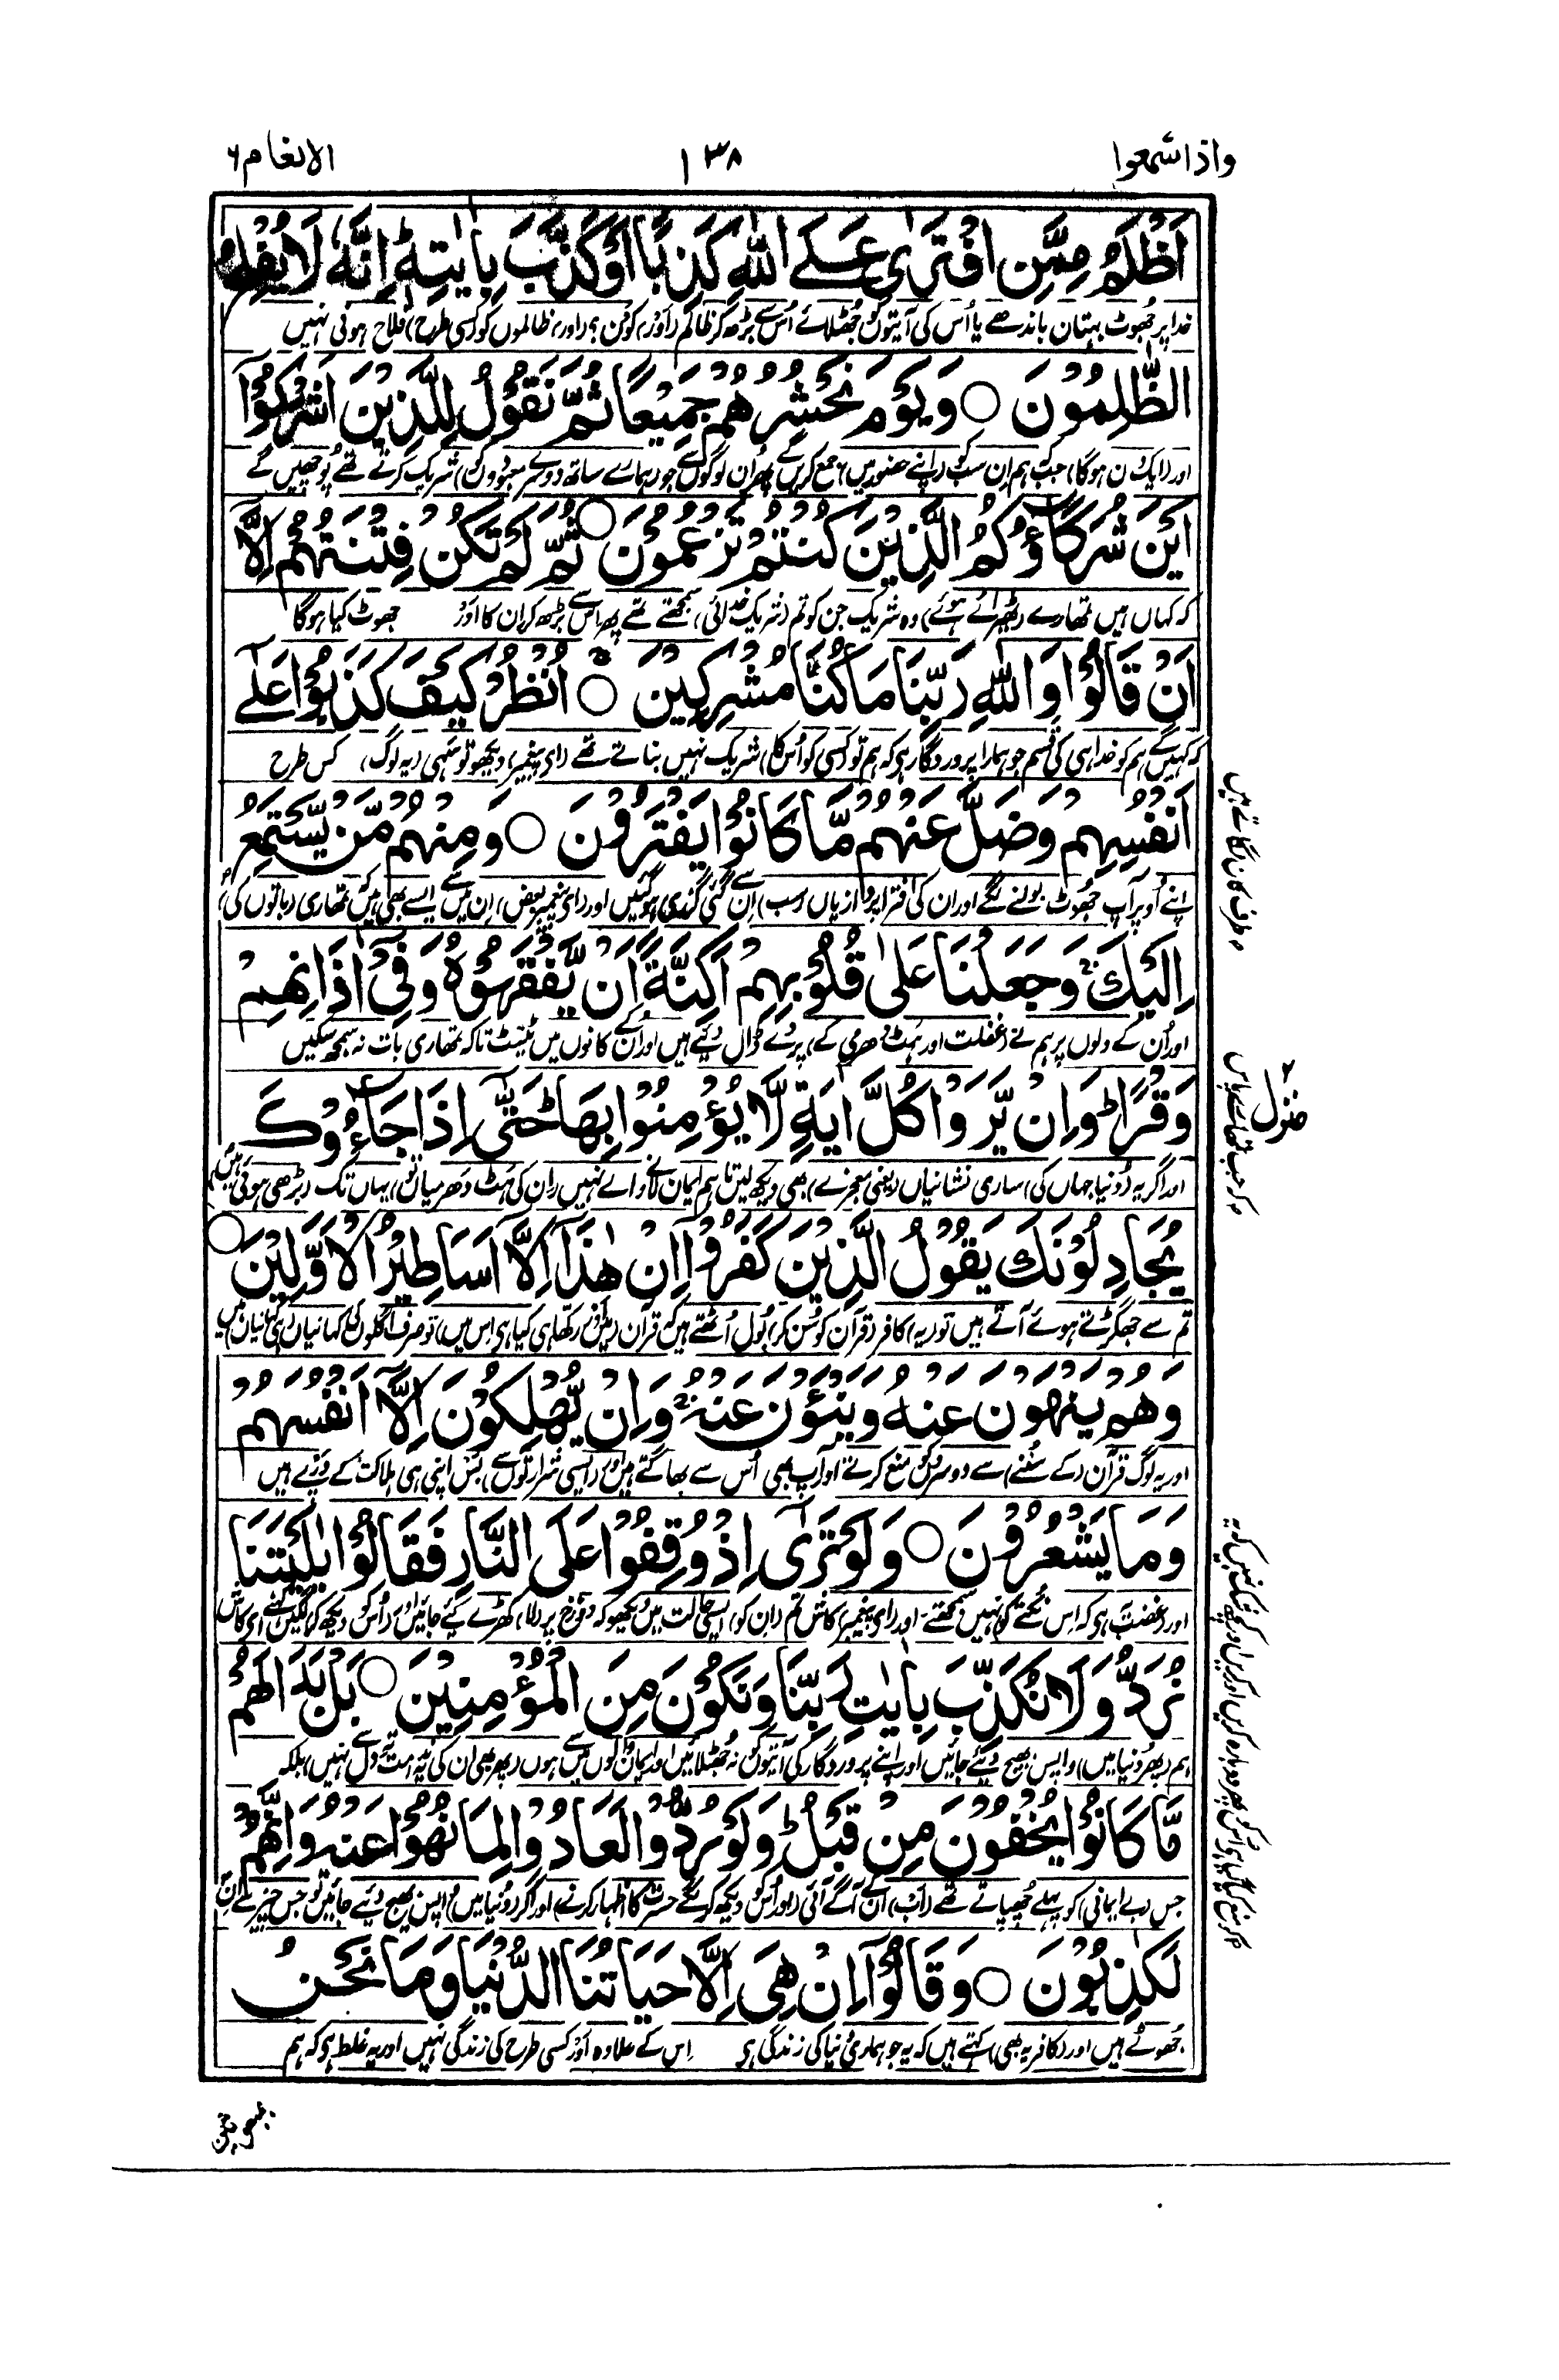 واذا سمعوا
١٣٨
الانعام ٦
اَظْلَمُ مِمَّنِ افْتَرٰى عَلَے اللّٰهِ كَذِبًا اَوْ كَذَّبَ بِاٰيٰتِهٖ ؕ اِنَّهٗ لَا يُفْلِحُ
خدا پر جھوٹ بہتان باندھے یا اُس کی آیتوں کو جُھٹلائے اُس سے بڑھ کر ظالم (اور) کون؟ (اور) ظالموں کو (کسی طرح) فلاح ہونی نہیں
الظّٰلِمُوْنَ ○ وَيَوْمَ نَحْشُرُهُمْ جَمِيْعًا ثُمَّ نَقُوْلُ لِلَّذِيْنَ اَشْرَكُوْٓا
اور (ایک دن ہوگا) جب ہم اِن سب کو (اپنے حضور میں) جمع کریں گے پھر اُن لوگوں سے جو (ہمارے ساتھ دوسرے معبودوں کو) شریک کرتے تھے پوچھیں گے
اَيْنَ شُرَكَآؤُكُمُ الَّذِيْنَ كُنْتُمْ تَزْعُمُوْنَ ○ ثُمَّ لَمْ تَكُنْ فِتْنَتُهُمْ اِلَّآ
کہ کہاں ہیں تمھارے (ٹھیرائے ہوئے) وہ شریک جن کو تم (شریک خدائی) سمجھتے تھے پھر اس سے بڑھ کر ان کا اَور جھوٹ کیا ہوگا
اَنْ قَالُوْا وَاللّٰهِ رَبِّنَا مَا كُنَّا مُشْرِكِيْنَ ○ اُنْظُرْ كَيْفَ كَذَبُوْا عَلٰٓے
کہ کہیں گے ہم کو خدا ہی کی قسم جو ہمارا پروردگار ہی کہ ہم تو کسی کو اُس کا شریک نہیں بناتے تھے (ای پیغمبر) دیکھو تو سہی (یہ لوگ) کس طرح
اَنْفُسِهِمْ وَضَلَّ عَنْهُمْ مَّا كَانُوْا يَفْتَرُوْنَ ○ وَمِنْهُمْ مَّنْ يَّسْتَمِعُ
اپنے اُوپر آپ جھوٹ بولنے لگے اور ان کی افترا پردازیاں (سب) اِن سے گئی گذری ہوگئیں اور (ای پیغمبر) بعض اِن میں سے ایسے بھی ہیں کہ تمھاری (باتوں کی)
اِلَيْكَ ۚ وَجَعَلْنَا عَلٰى قُلُوْبِهِمْ اَكِنَّةً اَنْ يَّفْقَهُوْهُ وَفِيْٓ اٰذَانِهِمْ
اور اُن کے دلوں پر ہم نے (غفلت اور ہٹ دھرمی کے) پردے ڈال دیئے ہیں اور اُن کے کانوں میں ٹینٹ تاکہ تمھاری بات نہ سمجھ سکیں
وَقْرًا ؕ وَاِنْ يَّرَوْا كُلَّ اٰيَةٍ لَّا يُؤْمِنُوْا بِهَا ؕ حَتّٰٓى اِذَا جَآءُوْكَ
اور اگر یہ (دُنیا جہاں کی) ساری نشانیاں (یعنی معجزے) بھی دیکھ لیں تاہم ایمان لانے والے نہیں (ان کی ہٹ دھرمیاں تو) یہاں تک (بڑھی ہوئی) ہیں
يُجَادِلُوْنَكَ يَقُوْلُ الَّذِيْنَ كَفَرُوْٓا اِنْ هٰذَآ اِلَّآ اَسَاطِيْرُ الْاَوَّلِيْنَ ○
تم سے جھگڑتے ہوئے آتے ہیں تو (یہ) کافر (قرآن کو سُن کر) بول اُٹھتے ہیں کہ قرآن (میں اور رکھا ہی کیا ہی اس میں) تو صرف اگلوں کی کہانیاں (ہی کہانیاں) ہیں
وَهُمْ يَنْهَوْنَ عَنْهُ وَيَنْـَٔوْنَ عَنْهُ ۚ وَاِنْ يُّهْلِكُوْنَ اِلَّآ اَنْفُسَهُمْ
اور یہ لوگ قرآن (کے سننے) سے دوسروں کو منع کرتے اور آپ بھی اُس سے بھاگتے ہیں اور (ایسی شرارتوں سے) بس اپنی ہی ہلاکت کے درپے ہیں
وَمَا يَشْعُرُوْنَ ○ وَلَوْ تَرٰٓى اِذْ وُقِفُوْا عَلَى النَّارِ فَقَالُوْا يٰلَيْتَنَا
اور (غضب ہی کہ اِس نکتے کو) نہیں سمجھتے اور (ای پیغمبر) کاش تم (ان کو) ایسی حالت میں دیکھو کہ دوزخ پر (لا) کھڑے کیے جائیں اور (اس کو دیکھ کر) لگیں کہنے ای کاش
نُرَدُّ وَلَا نُكَذِّبَ بِاٰيٰتِ رَبِّنَا وَنَكُوْنَ مِنَ الْمُؤْمِنِيْنَ ○ بَلْ بَدَا لَهُمْ
ہم (پھر دُنیا میں) واپس بھیج دیئے جائیں اور اپنے پروردگار کی آیتوں کو نہ جُھٹلائیں اور ایمان والوں میں سے ہوں (پھر بھی ان کی یہ ندامت تہِ دل سے نہیں) بلکہ
مَّا كَانُوْا يُخْفُوْنَ مِنْ قَبْلُ ؕ وَلَوْ رُدُّوْا لَعَادُوْا لِمَا نُهُوْا عَنْهُ وَاِنَّهُمْ
جس (بے ایمانی) کو پہلے چُھپاتے تھے (اب) اُن کے آگے آئی (اور اُس کو دیکھ کر لگے حسرت کا اظہار کرنے) اور اگر (دنیا میں) واپس بھیج دیئے جائیں تو جس چیز سے اِن
لَكٰذِبُوْنَ ○ وَقَالُوْٓا اِنْ هِىَ اِلَّا حَيَاتُنَا الدُّنْيَا وَمَا نَحْنُ
جُھوٹے ہیں اور (کافر یہ بھی) کہتے ہیں کہ یہ جو ہماری دنیا کی زندگی ہی اِس کے علاوہ اَور کسی طرح کی زندگی نہیں اور یہ غلط ہی کہ ہم
طرف کان لگاتے ہیں
منزل ٢
کہ جب تمھارے پاس
بمبعوثین